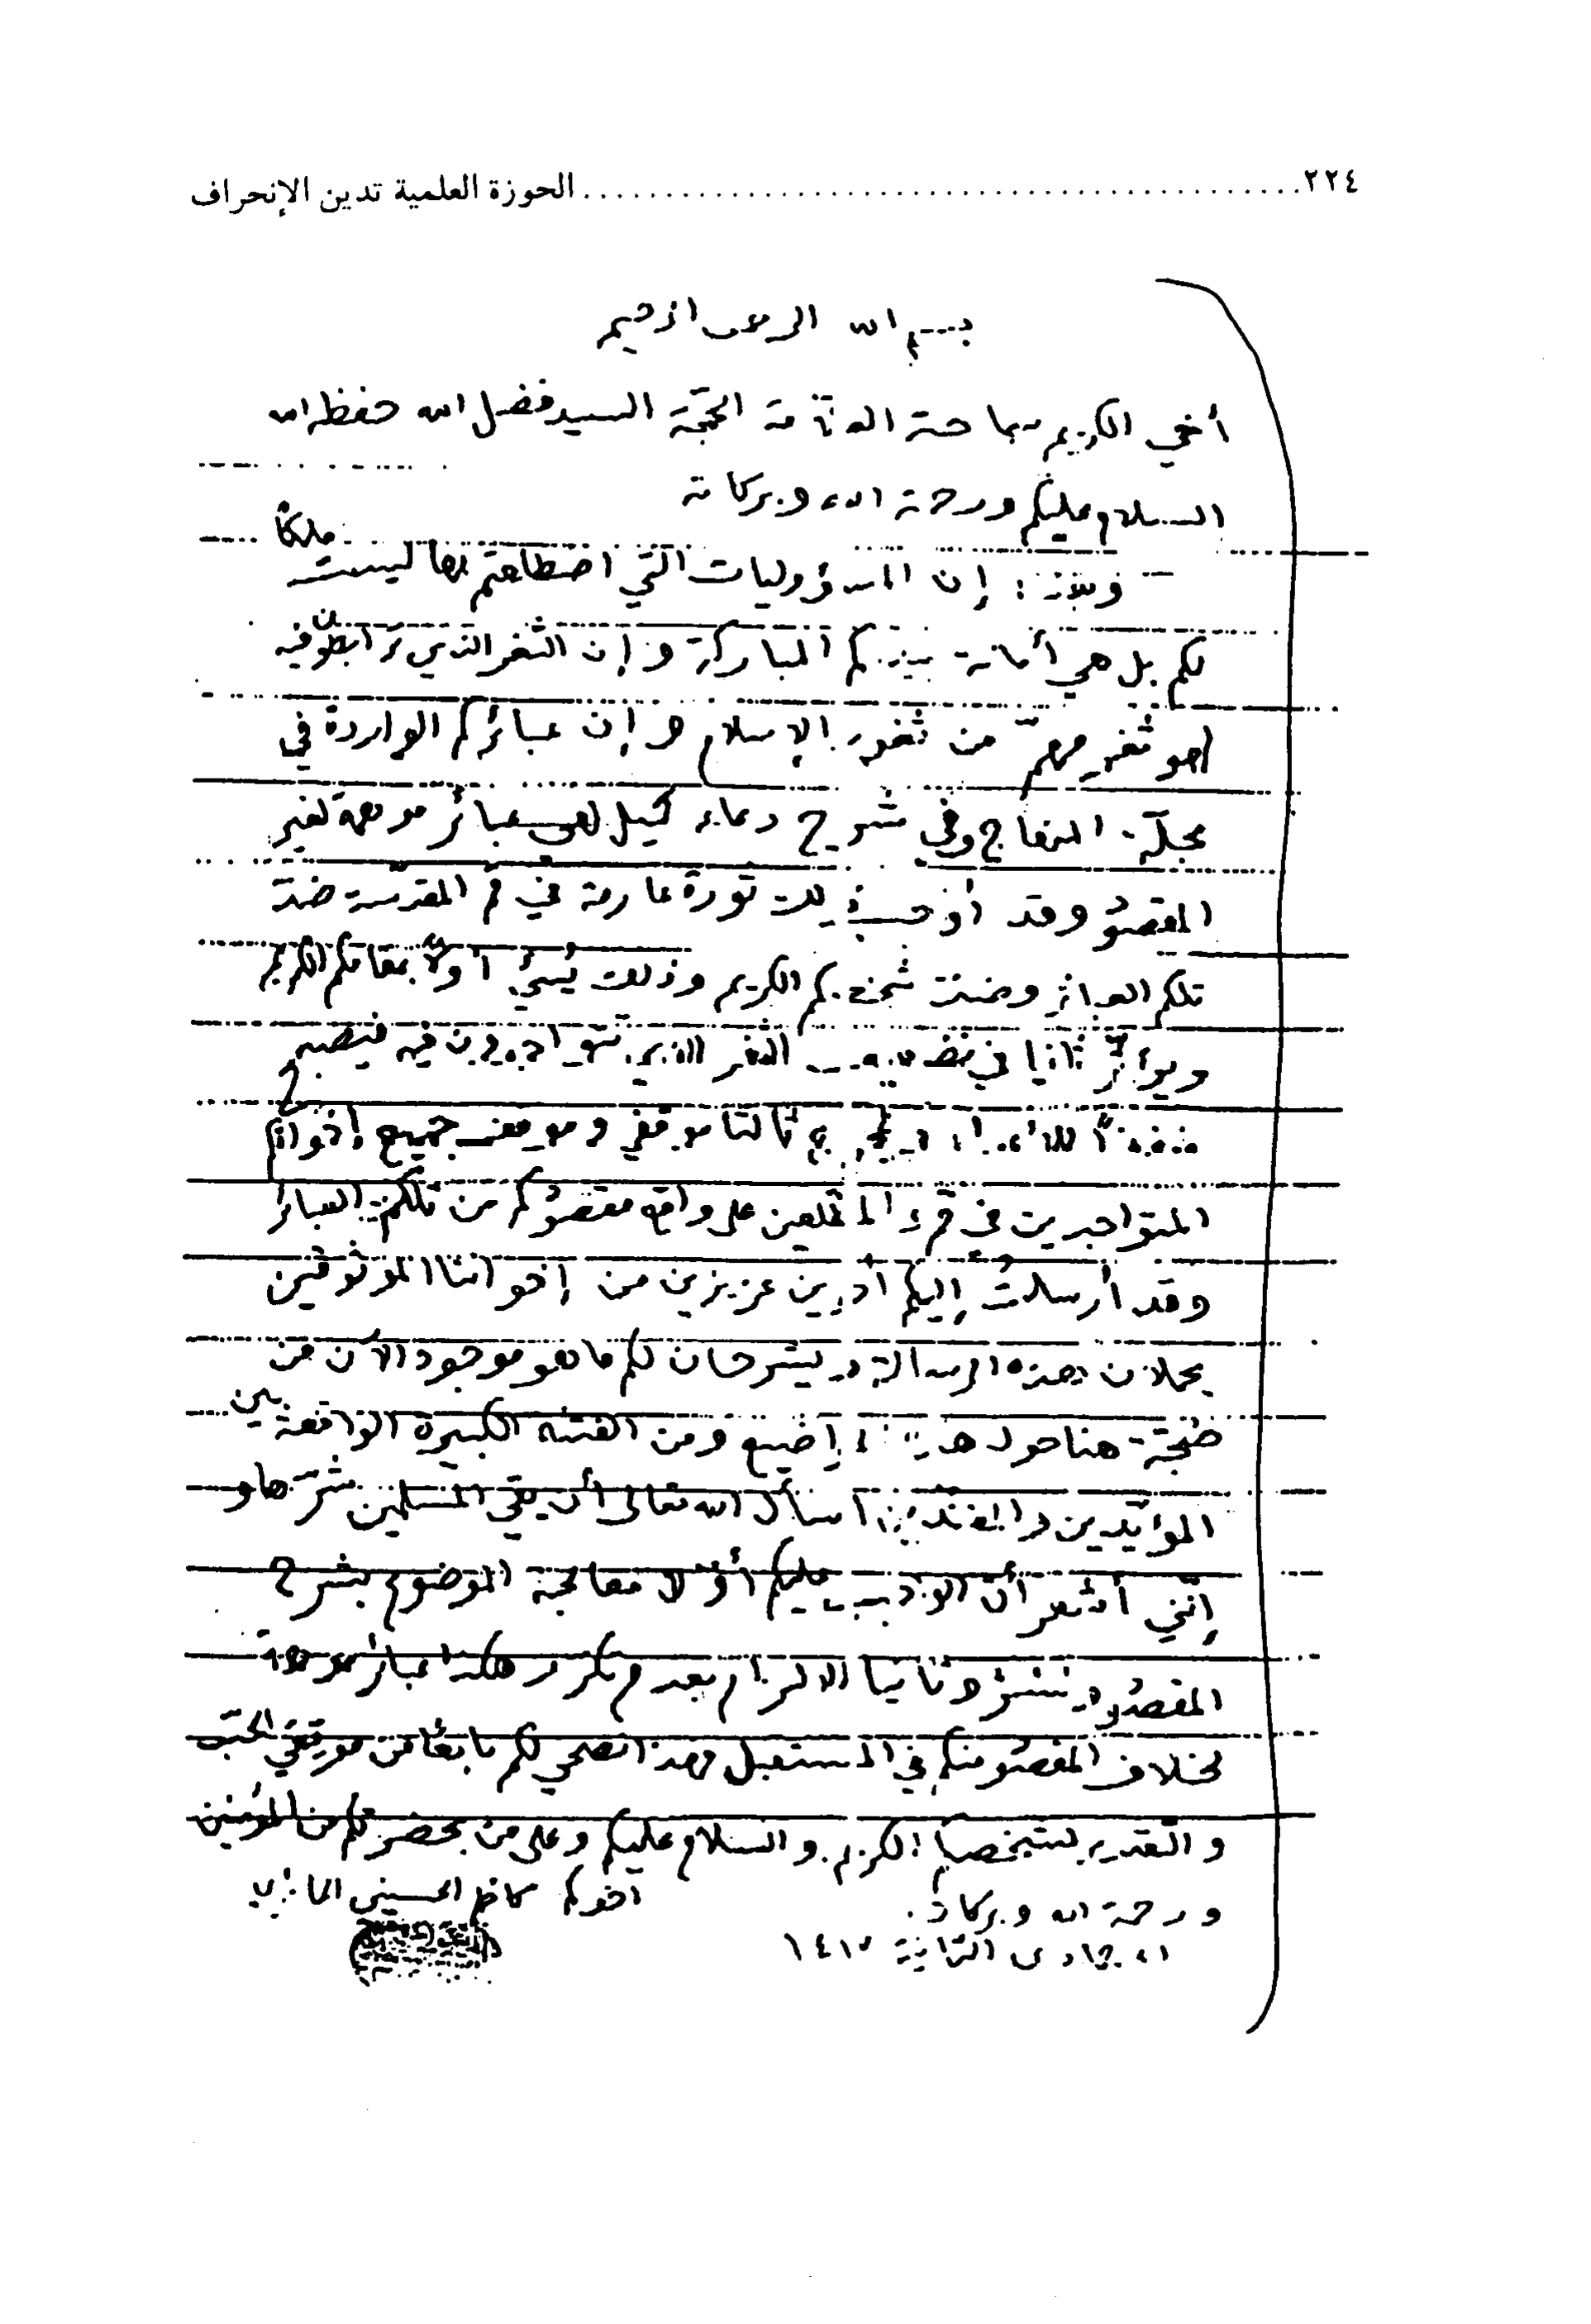 ٢٢٤ ........ الحوزة العلمية تدين الإنحراف
بسم الله الرحمن الرحيم
أخي الكريم سماحة العلامة الحجّة السيد فضل الله حفظه الله
السلام عليكم ورحمة الله وبركاته
وبعد : إن المسؤوليات التي اضطلعتم بها ليست ملكاً
لكم بل هي أمانة بيدكم المباركة وإن الثغر الذي ترابطون فيه
لهو ثغر مهمّ من ثغور الإسلام وإن عبائركم الواردة في
مجلّة المنهاج وفي شرح دعاء كميل لهي عبائر موهمة لغير
المقصود وقد أوجبت ثورة عارمة في قم المقدّسة ضدّ
تلكم العبائر وضدّ شخصكم الكريم وذلك يسيء أولاً بمقامكم الكريم
ويؤثّر ثانيا في الثغر الذي تتواجدون فيه فيصبح
ثالثا موقفي وموقف جميع إخوانكم
المتواجدين في قم المطّلعين على واقع مقصودكم من تلكم العبائر
وقد أرسلت إليكم أخوين عزيزين من إخواننا الموثوقين
يحملان هذه الرسالة ويشرحان لكم ما هو موجود الآن من
ضجّة هنا حول هذه المواضيع ومن الفتنة الكبيرة الواقعة بين
المؤيّدين والمفنّدين أسأل الله تعالى أن يقي المسلمين شرّها و
إنّني أشعر أنّ الواجب عليكم أولا معالجة الموضوع بشرح
المقصود وثانيا الالتزام بعدم تكرر هكذا عبائر موهمة
لخلاف المقصود منكم في المستقبل وهذا نصحي لكم نابعاً من موقفي الحبّ
والتقدير لشخصكم الكريم. والسلام عليكم وعلى من يحضركم من المؤمنين
ورحمة الله وبركاته.
أخوكم كاظم الحسيني الحائري
جمادى الثانية ١٤١٧